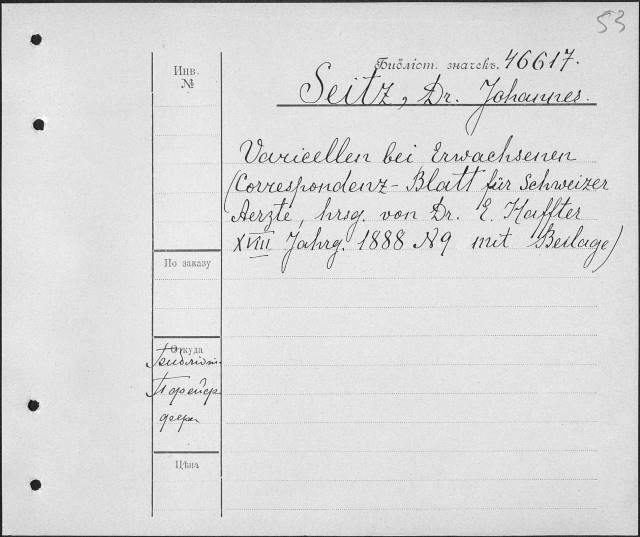 53
Инв.
№
Библіот. значекъ. 46617.
Seitz, Dr. Johannes.
Varicellen bei Erwachsenen
(Correspondenz-Blatt für Schweizer
Aerzte, hrsg. von Dr. E. Haffter
XVIII Jahrg. 1888 N9 mit Beilage)
По заказу
Откуда
Библіот.
Цѣна